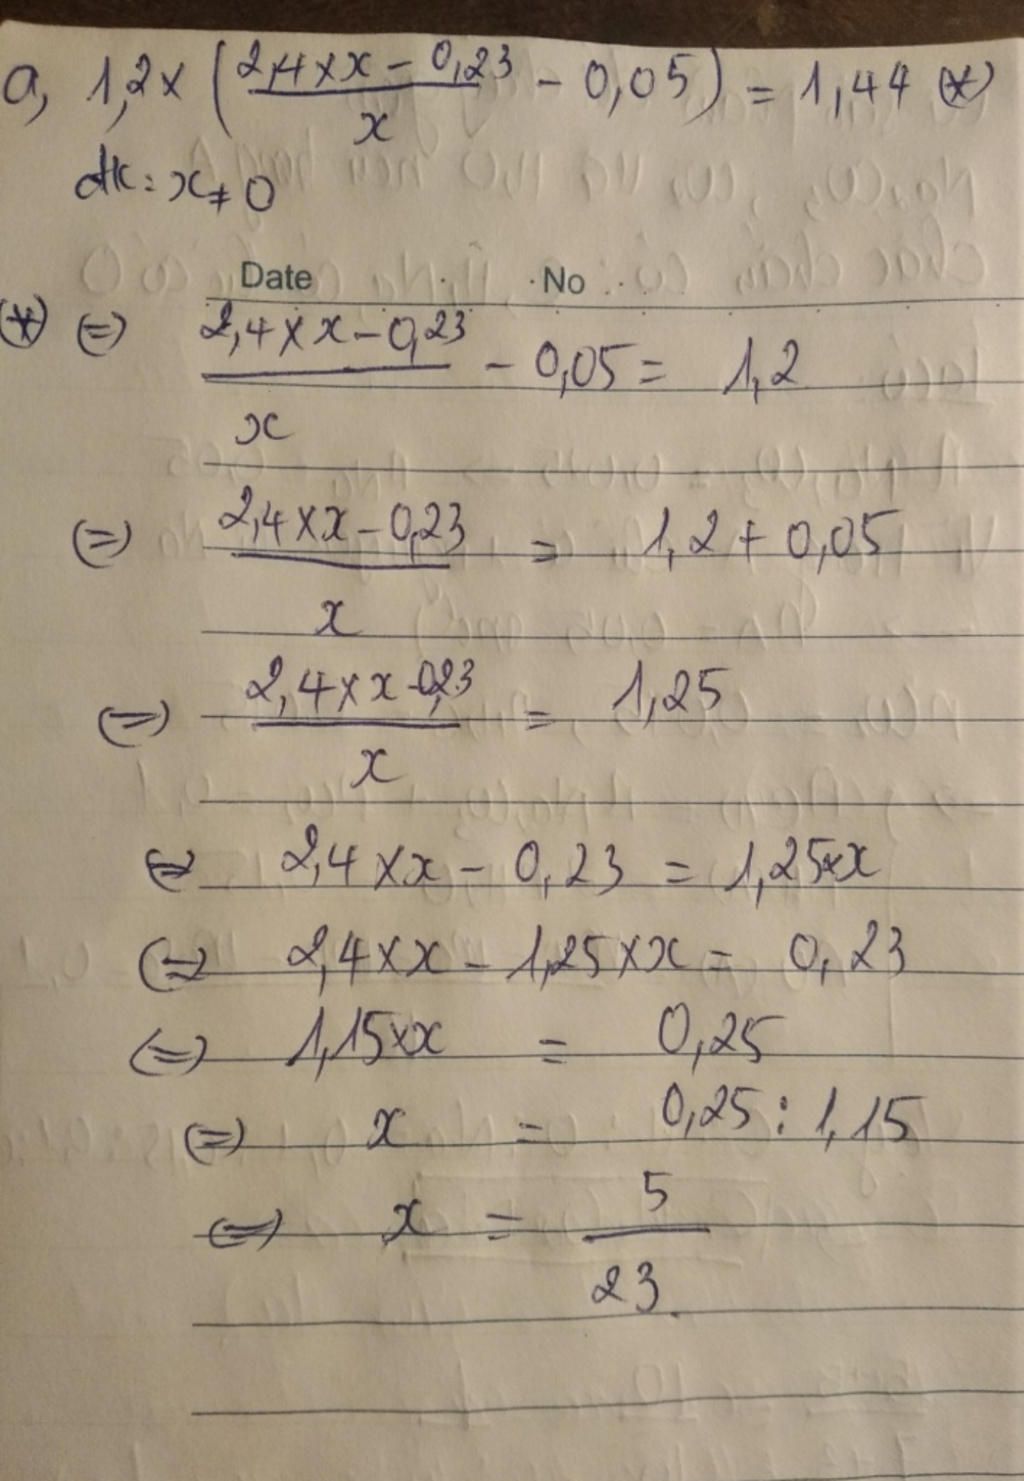 a, 1,2 x ( (2,4 x x - 0,23) / x - 0,05 ) = 1,44 (*)
đk: x ≠ 0
Date No
(*) (=) (2,4 x x - 0,23) / x - 0,05 = 1,2
(=) (2,4 x x - 0,23) / x = 1,2 + 0,05
(=) (2,4 x x - 0,23) / x = 1,25
(=) 2,4 x x - 0,23 = 1,25 x x
(=) 2,4 x x - 1,25 x x = 0,23
(=) 1,15 x x = 0,25
(=) x = 0,25 : 1,15
(=) x = 5 / 23